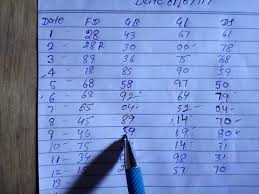 Date FD GB GL DS
1 28 43 67 61
2 28R 30 00 78
3 89 36 75 68
4 18 85 90 59
5 68 58 97 50
6 68 92 64 79
7 65 04 52 04
8 45 89 14 70
9 46 59 19 80
10 75 14 31
11 34 98 31
12 15 57 70
13